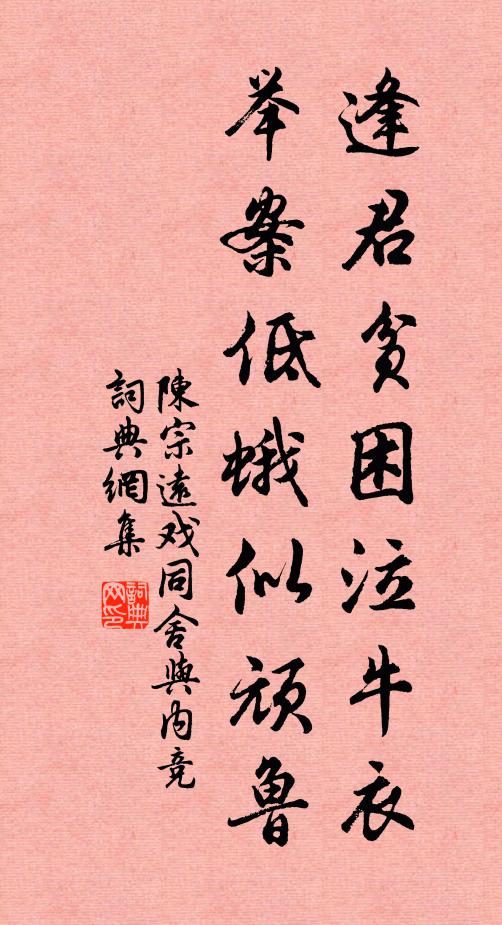 逢君贫困泣牛衣
举案低蛾似顽鲁
陳宗遠戏同舍與内竞
詞典網集
詞典网印